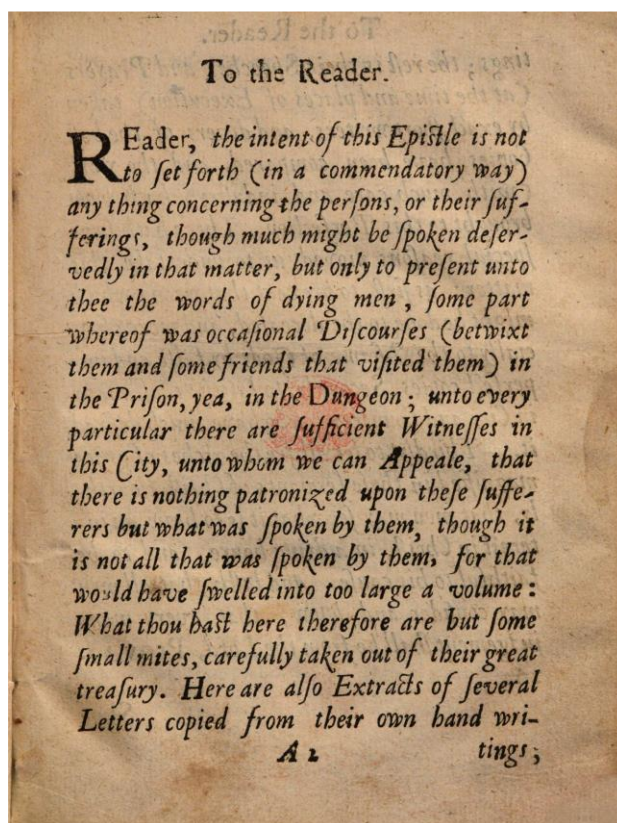 To the Reader.
REader, the intent of this Epistle is not
to ſet forth (in a commendatory way)
any thing concerning the perſons, or their ſuf-
ferings, though much might be ſpoken deſer-
vedly in that matter, but only to preſent unto
thee the words of dying men, ſome part
whereof was occaſional Diſcourſes (betwixt
them and ſome friends that viſited them) in
the Priſon, yea, in the Dungeon; unto every
particular there are ſufficient Witneſſes in
this City, unto whom we can Appeale, that
there is nothing patronized upon theſe ſuffe-
rers but what was ſpoken by them, though it
is not all that was ſpoken by them, for that
would have ſwelled into too large a volume:
What thou haſt here therefore are but ſome
ſmall mites, carefully taken out of their great
treaſury. Here are alſo Extracts of ſeveral
Letters copied from their own hand wri-
A 2 tings;